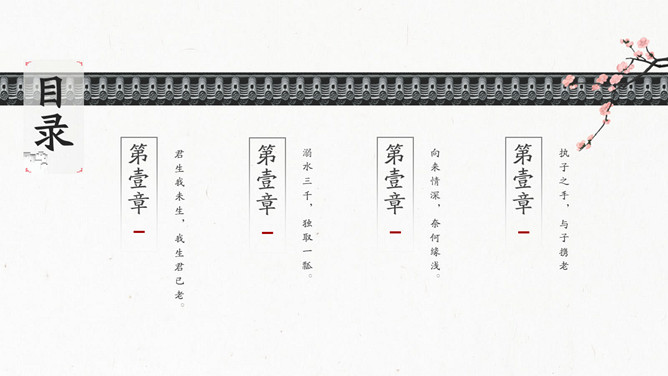 目录
第壹章
君生我未生，我生君已老。
第壹章
溺水三千，独取一瓢。
第壹章
向来情深，奈何缘浅。
第壹章
执子之手，与子携老